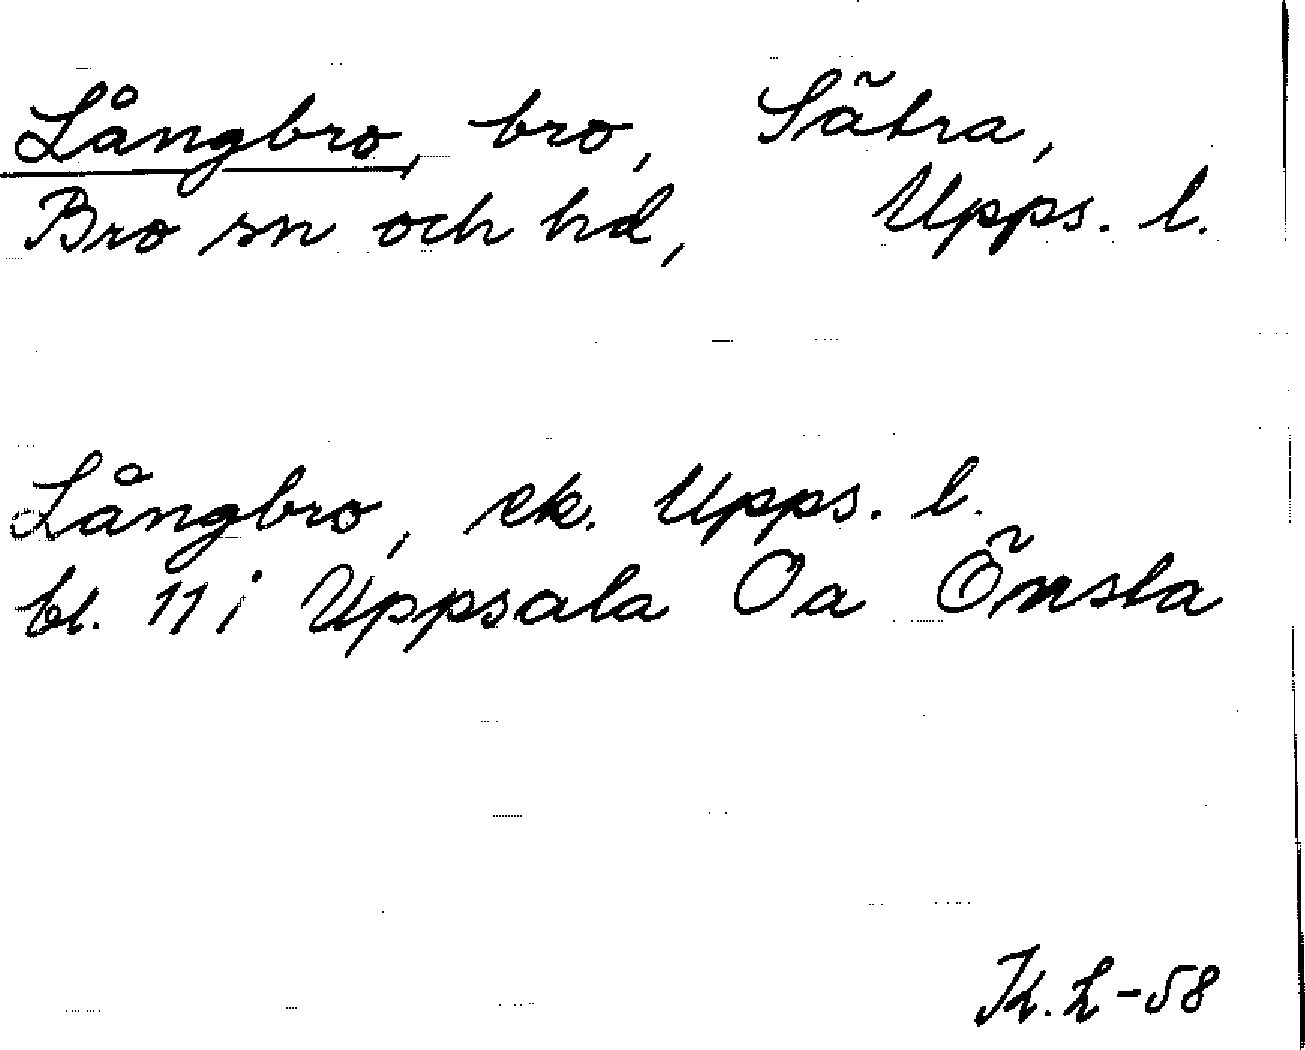 Långbro, bro, Sätra,
Bro sn och hd, Upps. l.
Långbro, ek. Upps. l.
bl. 11 i Uppsala Oa Önsta
K.L-58